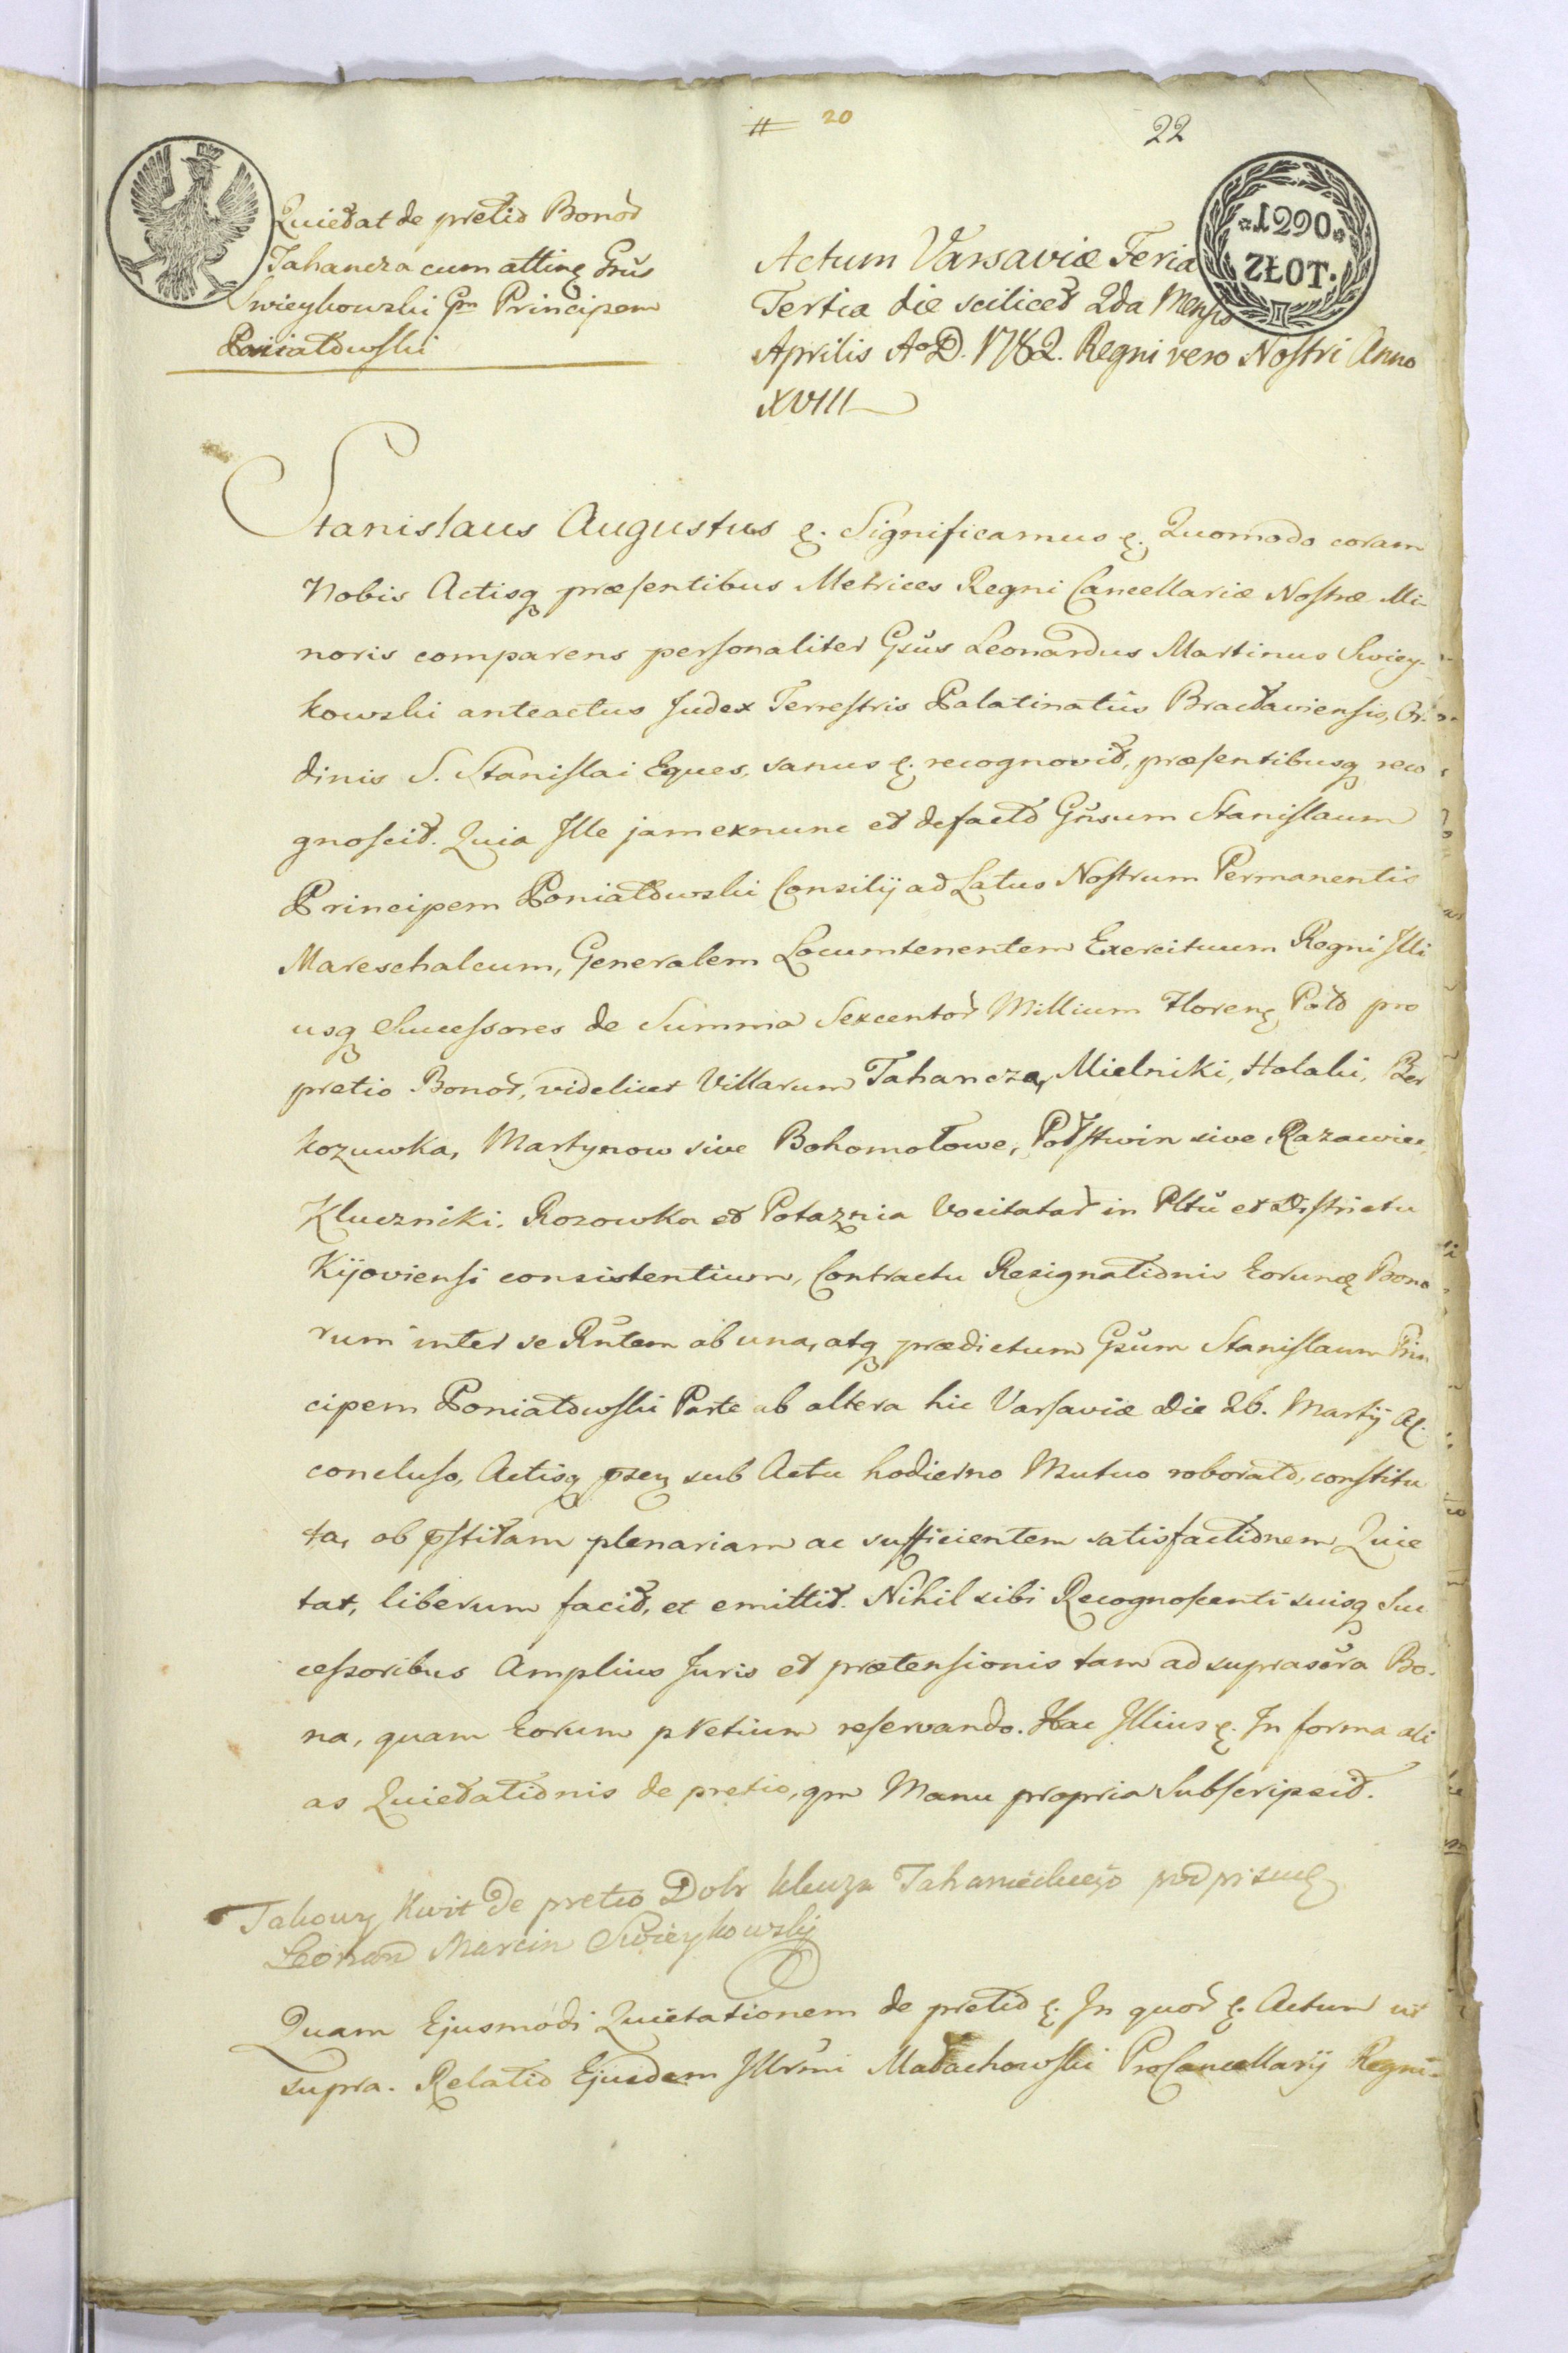 # 20
22
*1290*
ZŁOT.
Quietat de pretio Bonor̃
Tahancza cum attinę Grũs
Swieykowski Gm Principem
Poniatowski
Actum Varsaviæ Feria
Tertia die scilicet 2da Mensis
Aprilis Ao D. 1782. Regni vero Nostri Anno
XVIII
Stanislaus Augustus ę. Significamus ę. Quomodo coram
Nobis Actisq præsentibus Metrices Regni Cancellariæ Nostræ Mi-
noris comparens personaliter Gsũs Leonardus Martinus Swiey-
kowski anteactus Judex Terrestris Palatinatûs Bracłaviensis, Or-
dinis S. Stanislai Eques, sanus ę. recognovit, præsentibusq reco
gnoscit. Quia Ille jamexnunc et defacto Gñsum Stanislaum
Principem Poniatowski Consilij ad Latus Nostrum Permanentis
Mareschalcum, Generalem Locumtenentem Exercituum Regni Illi
usq Successores de Summa Sexcentor̃ Millium Florenę Polo pro
pretio Bonor̃, videlicet Villarum Tahancza, Mielniki, Holaki, Ber
kozuwka, Martynow sive Bohomołowe, Potstwin sive Razawiec,
Kluczniki. Rozowka et Potaznia Vocitatar̃ in Pltũ et Districtu
Kijoviensi consistentium, Contractu Resignationis Eorundę Bono
rum inter se Rñtem ab una, atq prædictum Gsũm Stanislaum Prin
cipem Poniatowski Parte ab altera hic Varsaviæ Die 26. Martij Aę.
concluso, Actisq pseę sub Actu hodierno Mutuo roborato, constitu
ta, ob pstitam plenariam ac sufficientem satisfactionem, Quie
tat, liberum facit, et emittit. Nihil sibi Recognoscenti suisq Suc
cessoribus Amplius Juris et prætensionis tam ad suprascr̃a Bo-
na, quam Eorum pretium reservando. Hac Illius ę. In forma ali
as Quietationis de pretio, qm Manu propria Subscripsit.
Takowy Kwit de pretio Dobr klucza Tahanieckiego podpisuię
Leonard Marcin Swieykowskj
Quam Ejusmodi Quietationem de pretio ę. In quor̃ ę. Actum ut
supra. Relatio Ejusdem Illrm̃i Małachowski ProCancellarij Regni